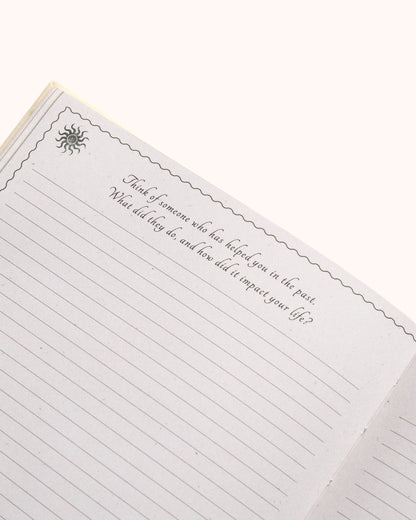 Think of someone who has helped you in the past.
What did they do, and how did it impact your life?